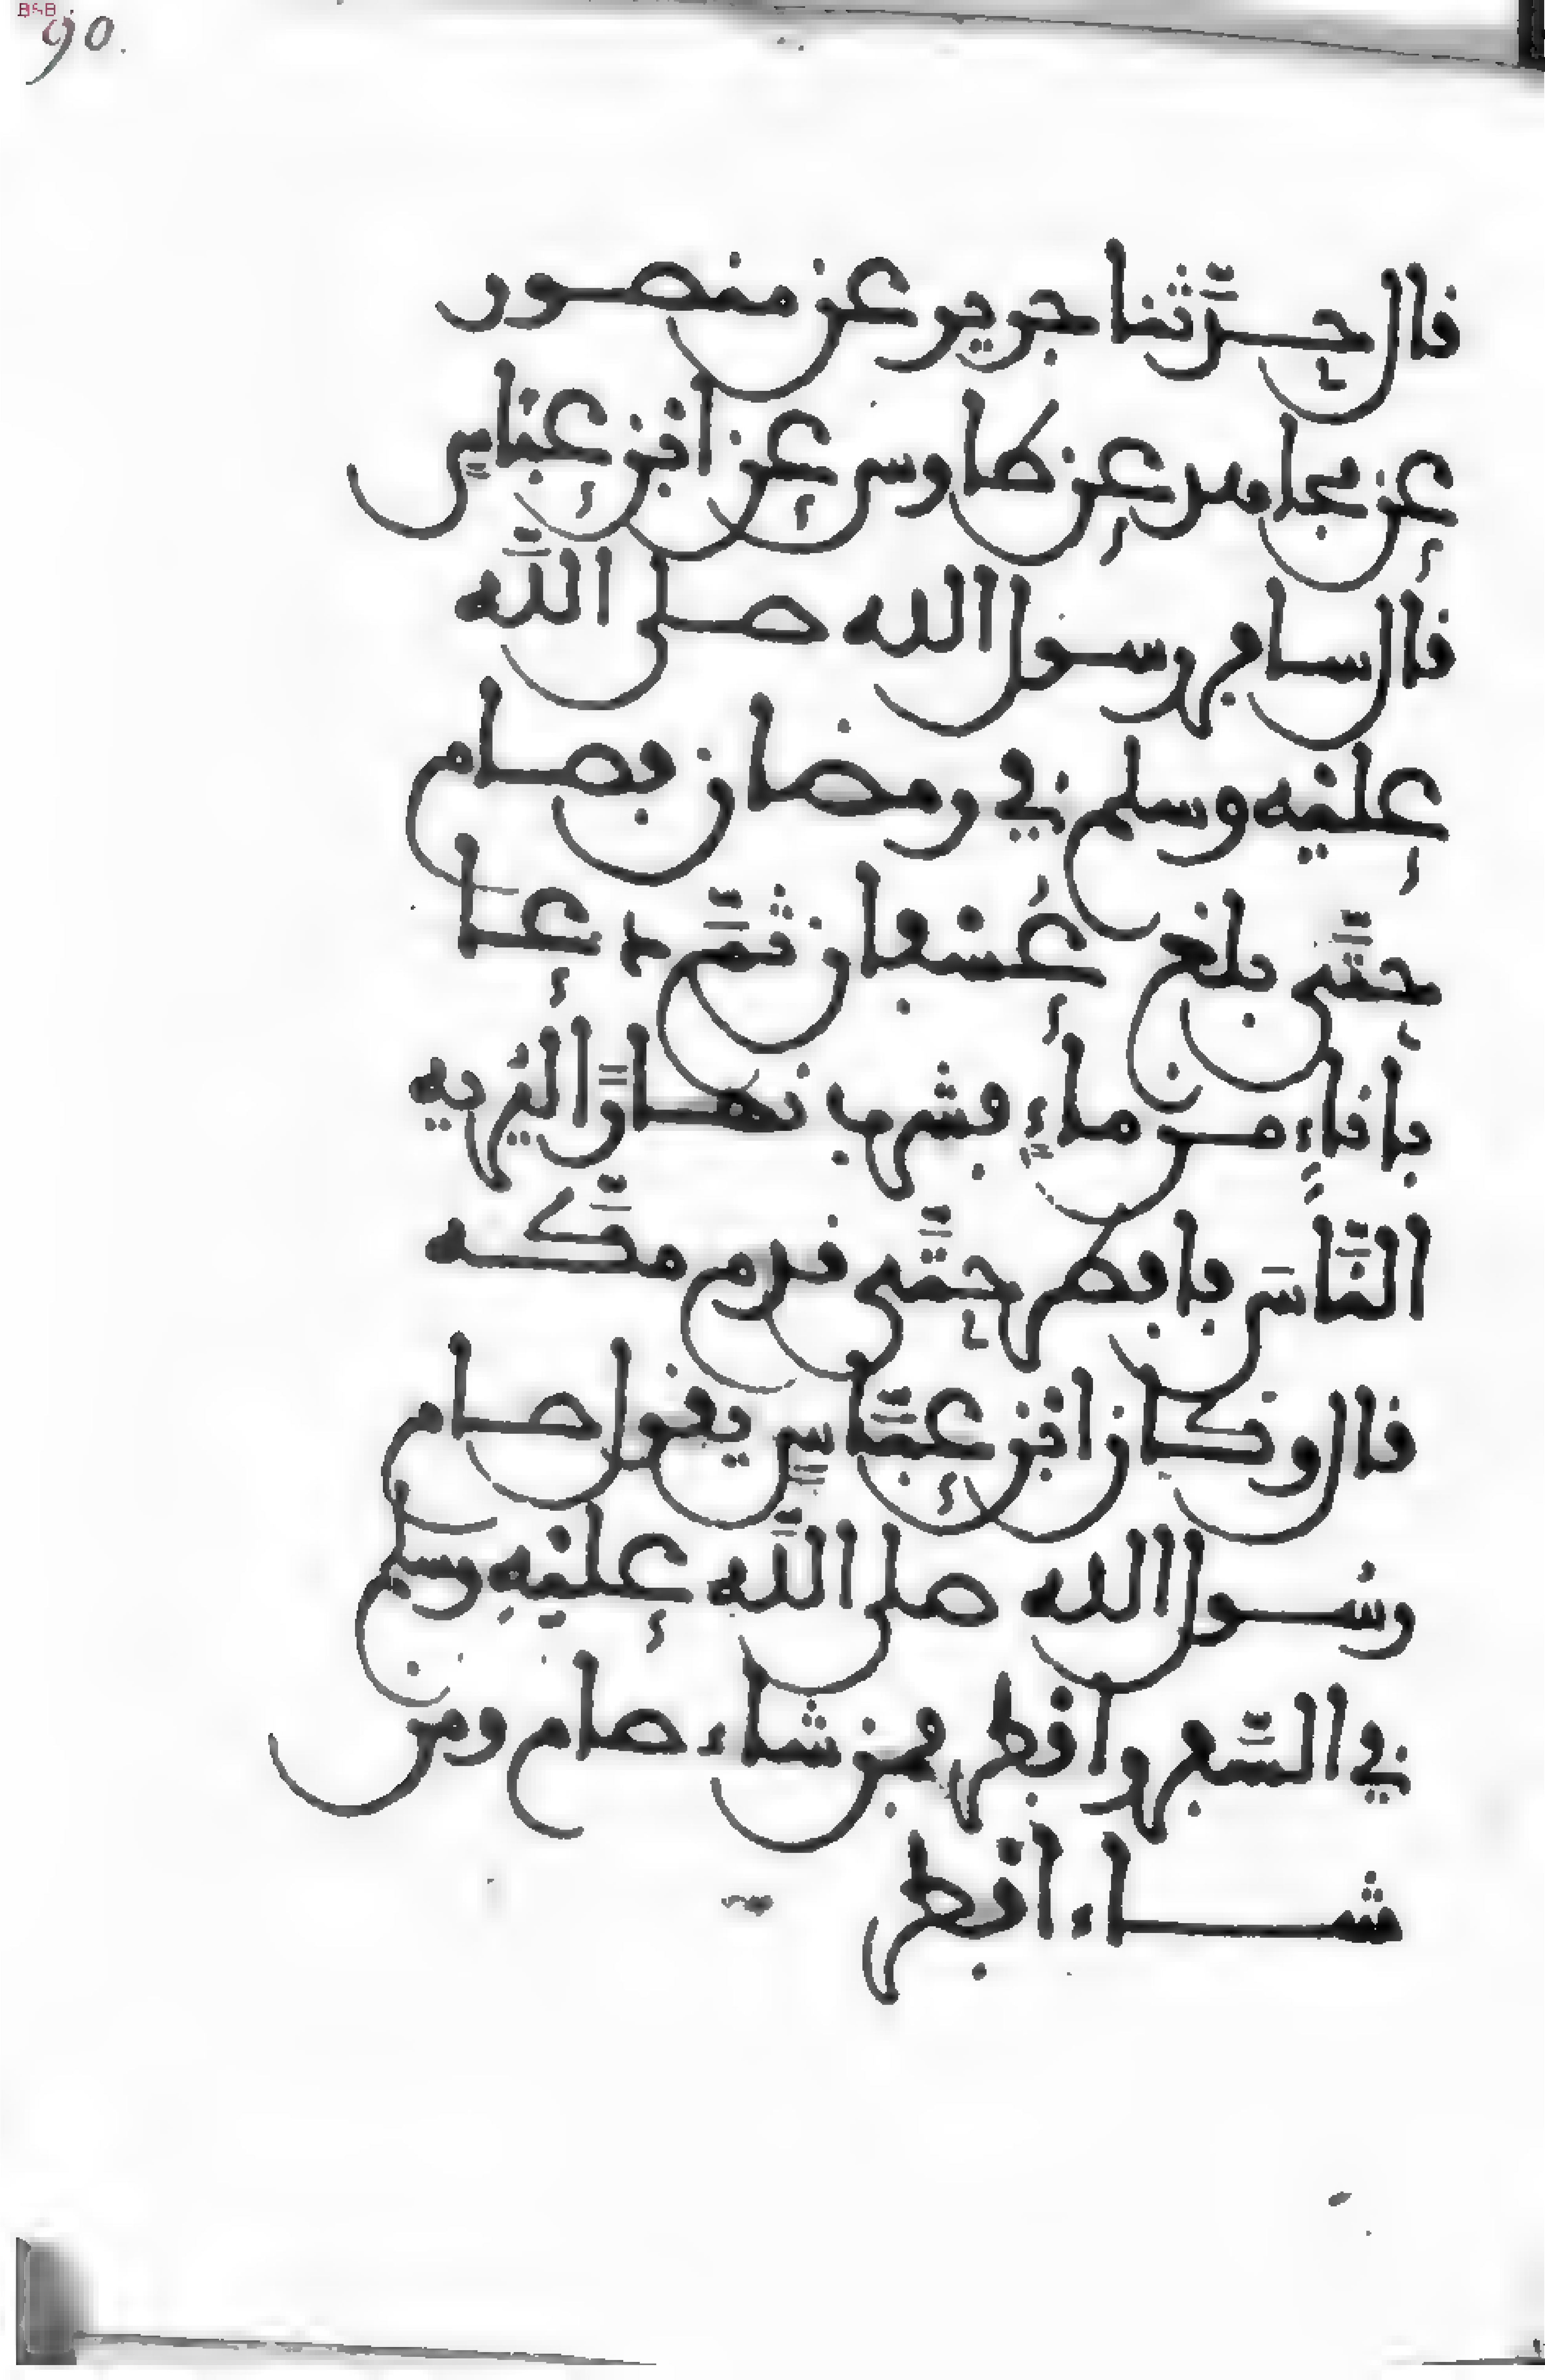 90.
قال حدّثنا جرير عن منصور
عن مجاهد عن طاوس عن ابن عباسٍ
قال سافر رسول الله صلى اللّه
عليه وسلم في رمضان فصام
حتّى بلغ عُسْفان ثمّ دعا
بإناءٍ من ماءٍ فشرب نهارًا ليريه
النّاسَ فافطر حتّى قدم مكّه
قال وكان ابن عبّاسٍ يقول صام
رسول الله صلى اللّه عليه وسلم
في السّفر وافطر فمن شاء صام ومن
شاء افطر